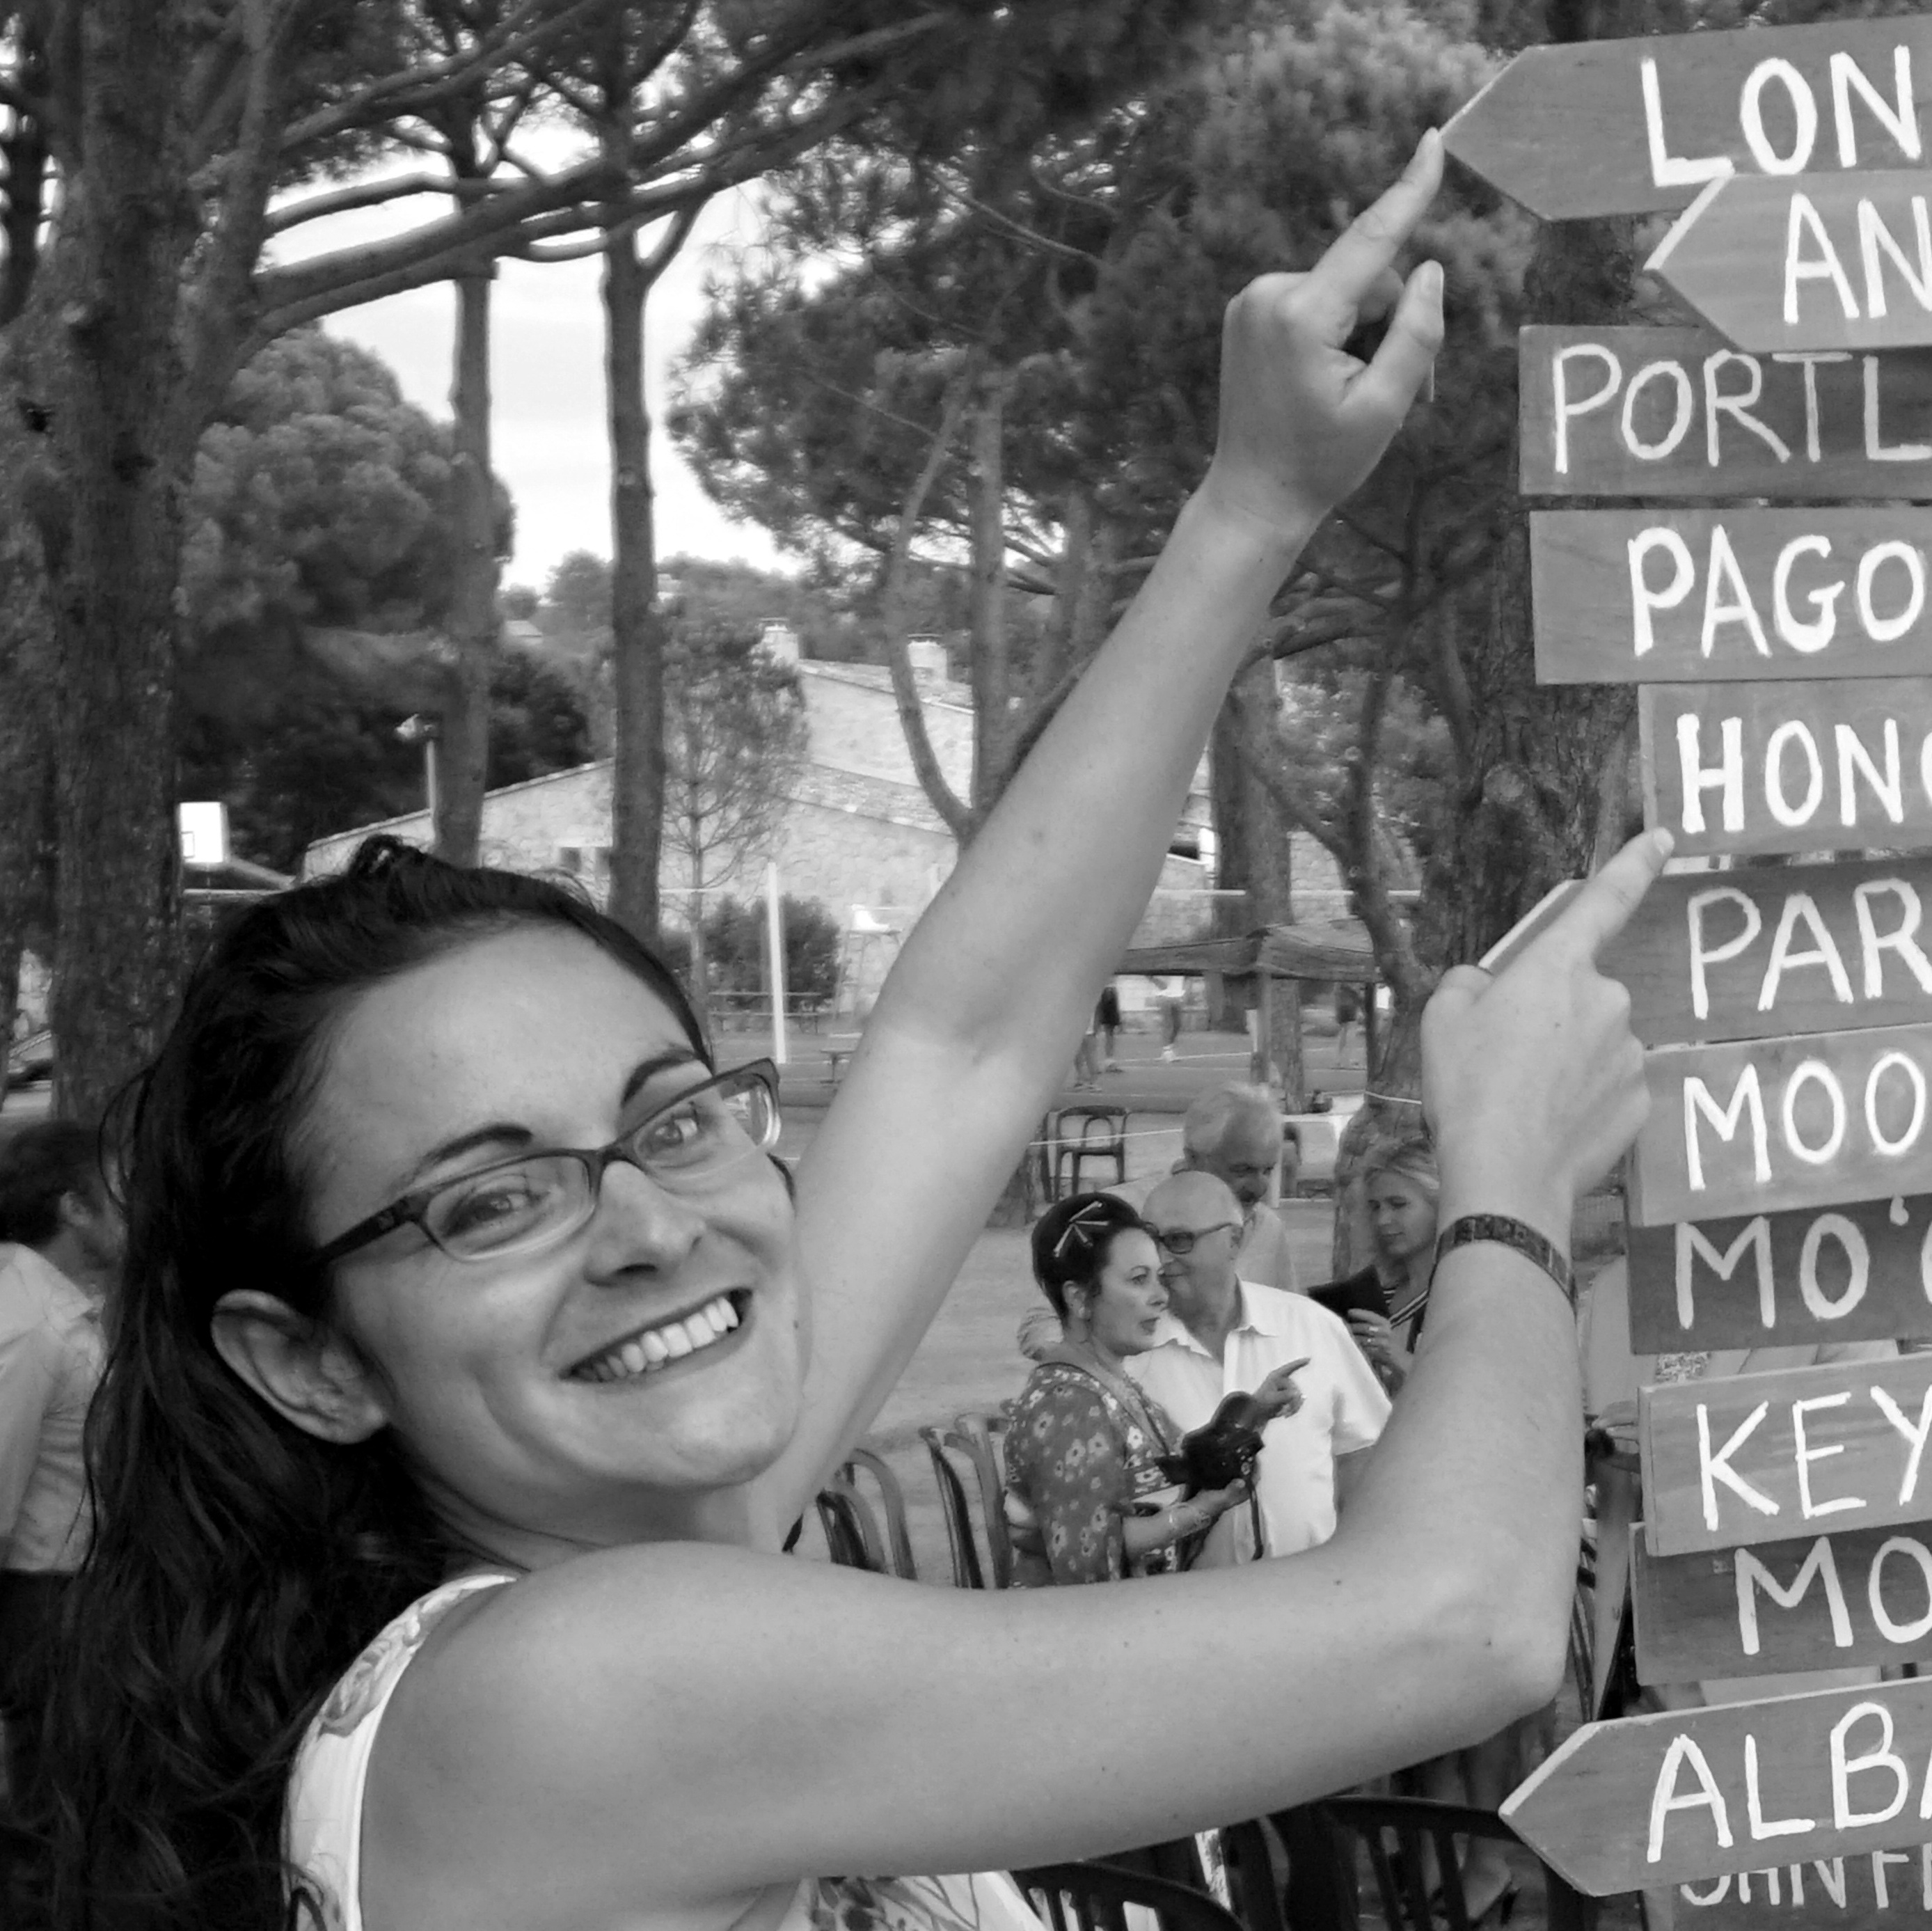 LON
AN
PORTL
PAGO
HONG
PAR
MOO
MO'
KEY
MO
ALBA
SAN F